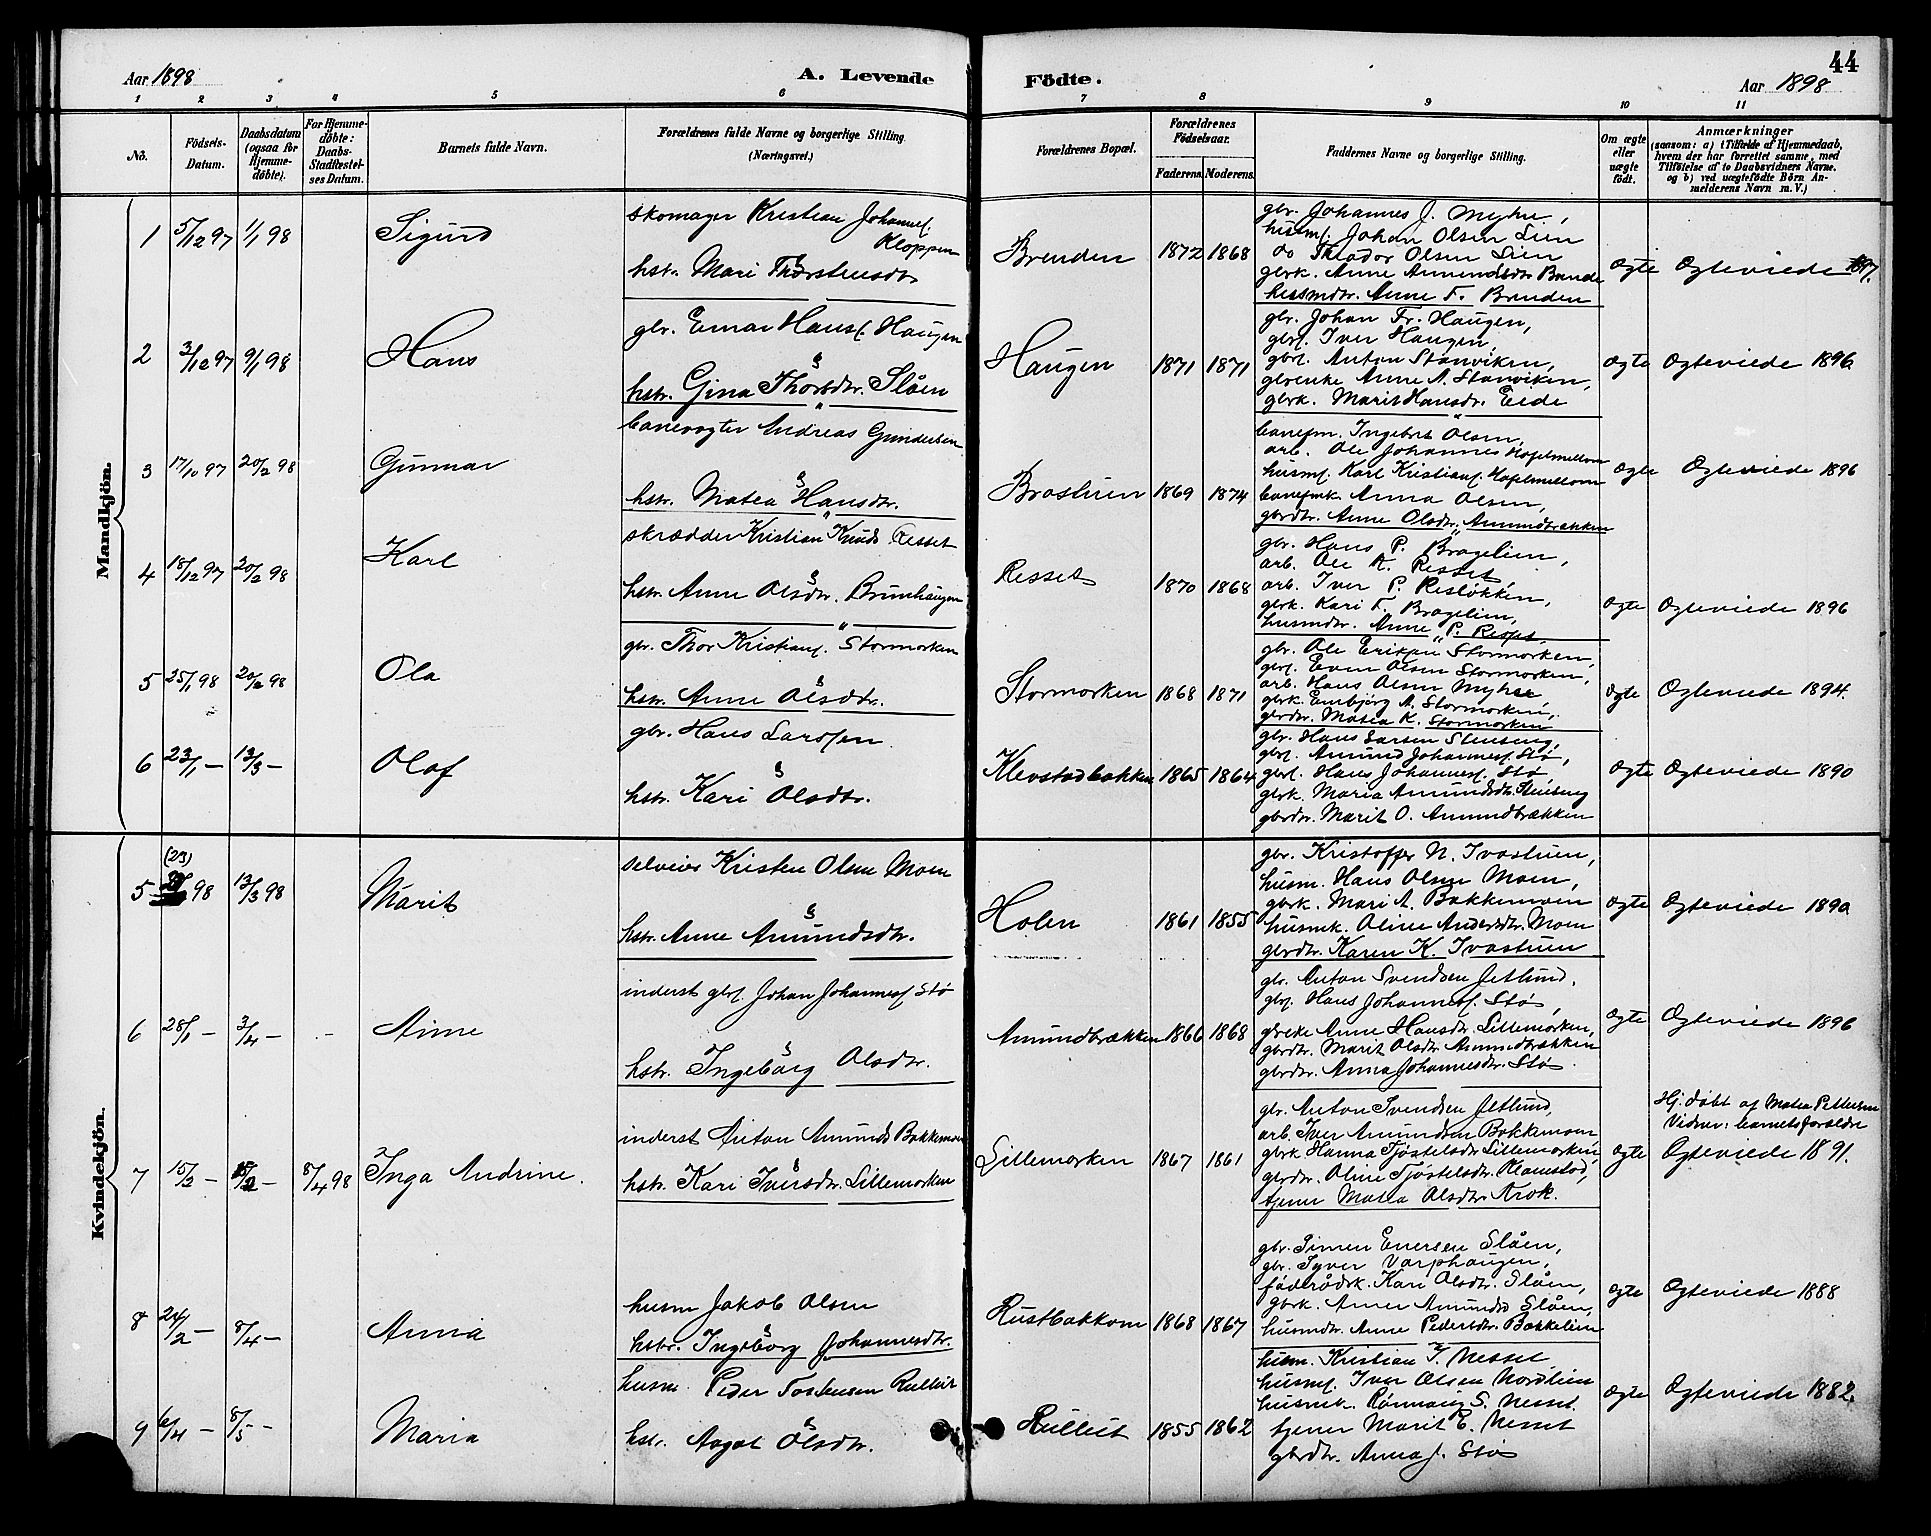 44
Aar 1898
A. Levende
Födte.
Aar 1898
1 2 3 4 5 6 7 8 9 10 11
No.
Födsels-
Datum.
Daabsdatum
(ogsaa for
Hjemme-
døbte).
For Hjemme-
døbte:
Daabs-
Stadfæstel-
ses Datum.
Barnets fulde Navn.
Forældrenes fulde Navne og borgerlige Stilling.
(Næringsvei.)
Forældrenes Bopæl.
Forældrenes
Födselsaar.
Faderens. Moderens.
Faddernes Navne og borgerlige Stilling.
Om ægte
eller
uægte
født.
Anmærkninger
(saasom: a) i Tilfælde af Hjemmedaab,
hvem der har forrettet samme, med
Tilføielse af to Daabsvidners Navne.
og b) ved uægtefødte Börn An-
melderens Navn m. V.)
Mandkjön.
1 5/12 97 1/1 98 Sigurd
skomager Kristian Johannesf.
Kloppen
hstr. Mari Thorstensdtr
Brenden 1872 1868
gbr. Johannes J. Myhre,
husmf. Johan Olsen Lien
do Theodor Olsen Lien
gbrk. Anne Amundsdtr. Brende
husmdtr. Anne F. Brenden
ægte Ægteviede 1897.
2 3/12 97 9/1 98 Hans
gbr. Einar Hansf. Haugen
hstr. Gina Thorsdtr. Slåen
Haugen 1871 1871
gbr. Johan Fr. Haugen,
gbrf. Iver Haugen,
gbrf. Anton Stanviken,
gbrenke Anne A. Stanviken,
gbrk. Marit Hansdtr. Eide
ægte Ægteviede 1896
3 17/10 97 20/2 98 Gunnar
banevogter Andreas Gundersen
hstr. Matea Hansdtr.
Brostuen 1869 1874
banefm. Ingebret Olsen,
arb. Ole Johannes
husmf. Karl Kristiansf.
banefmk. Anna Olsen,
gbrdtr. Anne Olsdtr. Amundbrækken
ægte Ægteviede 1896
4 18/12 97 20/2 98 Karl
skrædder Kristian Knuds. Resset
hstr. Anne Olsdtr. Brunhaugen
Resset 1870 1868
gbr. Hans P. Bragelien,
arb. Ole K. Resset,
arb. Iver P. Resløkken,
gbrk. Kari F. Bragelien,
husmdtr. Anne P.
ægte Ægteviede 1896
5 25/1 98 20/2 98 Ola
gbr. Thor Kristiansf. Stormorken
hstr. Anne Olsdtr.
Stormorken 1868 1871
gbr. Ole Eriksen Stormorken,
gbrf. Even Olsen Stormorken,
arb. Hans Olsen Myhre
gbrk. Embjørg A. Stormorken,
gbrdtr. Matea K. Stormorken
ægte Ægteviede 1894.
6 23/1 — 13/3 — Olaf
gbr. Hans Larssen
hstr. Kari Olsdtr.
Klevstadbakken 1865 1864
gbr. Hans Larsen Stenberg,
gbrf. Amund Johannesf. Stø,
gbrf. Hans Johannesf. Stø,
gbrk. Maria Amundsdtr. Stenberg
gbrdtr. Marit O. Amundbrækken
ægte Ægteviede 1890
Kvindekjön.
(23)
5 98 13/3 98 Marit
selveier Kristen Olsen Moen
hstr. Anne Amundsdtr.
Holen 1861 1855
gbr. Kristoffer N. Ivastuen,
husm. Hans Olsen Moen,
gbrk. Mari A. Bakkemoen
husmk. Oline Andersdtr. Moen
gbrdtr. Karen K. Ivastuen
ægte Ægteviede 1890
6 28/1 — 3/4 — Anne
inderst gbrf. Johan Johannesf Stø
hstr. Ingeborg Olsdtr.
Amundbrækken 1866 1868
gbr. Anton Svendsen Jetlund,
gbrf. Hans Johannesf. Stø,
gbreke Anne Hansdtr. Lillemorken,
gbrdtr. Marit Olsdtr Amundbrækken
gbrdtr. Anna Johannesdtr. Stø.
ægte Ægteviede 1896
7 15/2 — 8/4 98 Inga Andrine.
inderst Anton Amunds Bakkemoen
hstr. Kari Iversdtr. Lillemorken
Lillemorken 1867 1861
gbr. Anton Svendsen Jetlund,
arb. Iver Amundsen Bakkemoen,
gbrk. Hanna Tjøstelsdtr Lillemorken,
gbrdtr. Oline Tjøstelsdtr. Klamstad,
tjener Matea Olsdtr. Krok.
ægte
Hj. døbt af Matea Pettersen
Vidner: barnets forældre
Ægteviede 1891.
8 24/2 — 8/4 — Anna
husm Jakob Olsen
hstr. Ingeborg Johannesdtr.
Rustbakkom 1868 1867
gbr. Simen Enersen Slåen,
gbr. Syver Varphaugen,
føderådsk. Kari Olsdtr. Slåen,
gbrk. Anne Amunds Slåen,
husmdtr. Anne Pedersdtr. Bakkelien
ægte Ægteviede 1888
9 6/4 — 8/5 — Maria
husm. Peder Tostensen Rullut
hstr. Aagot Olsdtr.
Rullut 1855 1862
husm. Kristian I. Nesset
husmf. Iver Olsen Nordlien
husmk. Rønnaug S. Nesset
tjener Marit E. Nesset
gbrdtr. Anna J. Stø
ægte Ægteviede 1882.